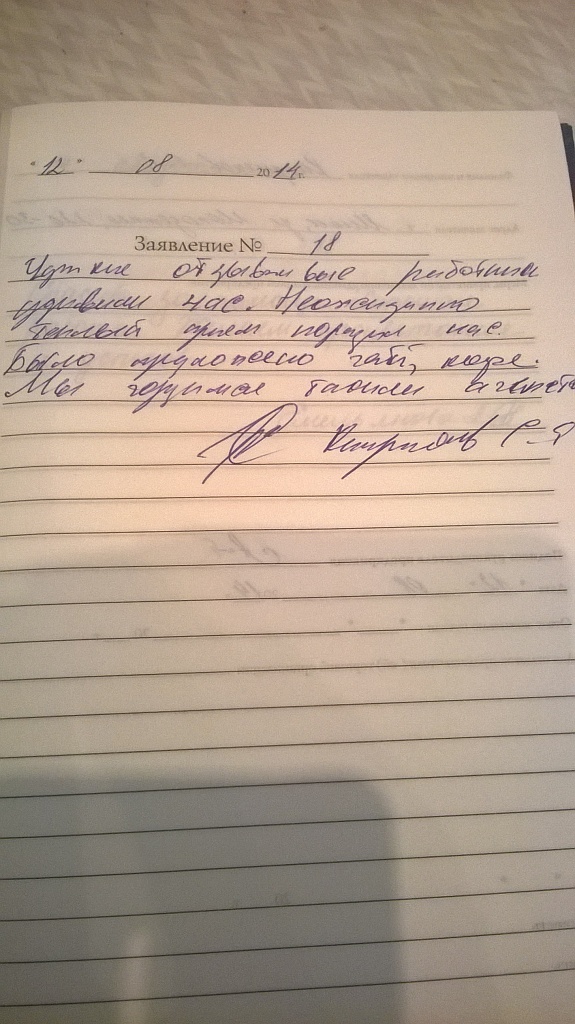 "12" 08 2014 г.
Заявление № 18
Чуткие отзывчивые работники
удивили нас. Неожиданно
теплый прием порадил нас.
Было предложено чай, кофе.
Мы гордимся такими агентст